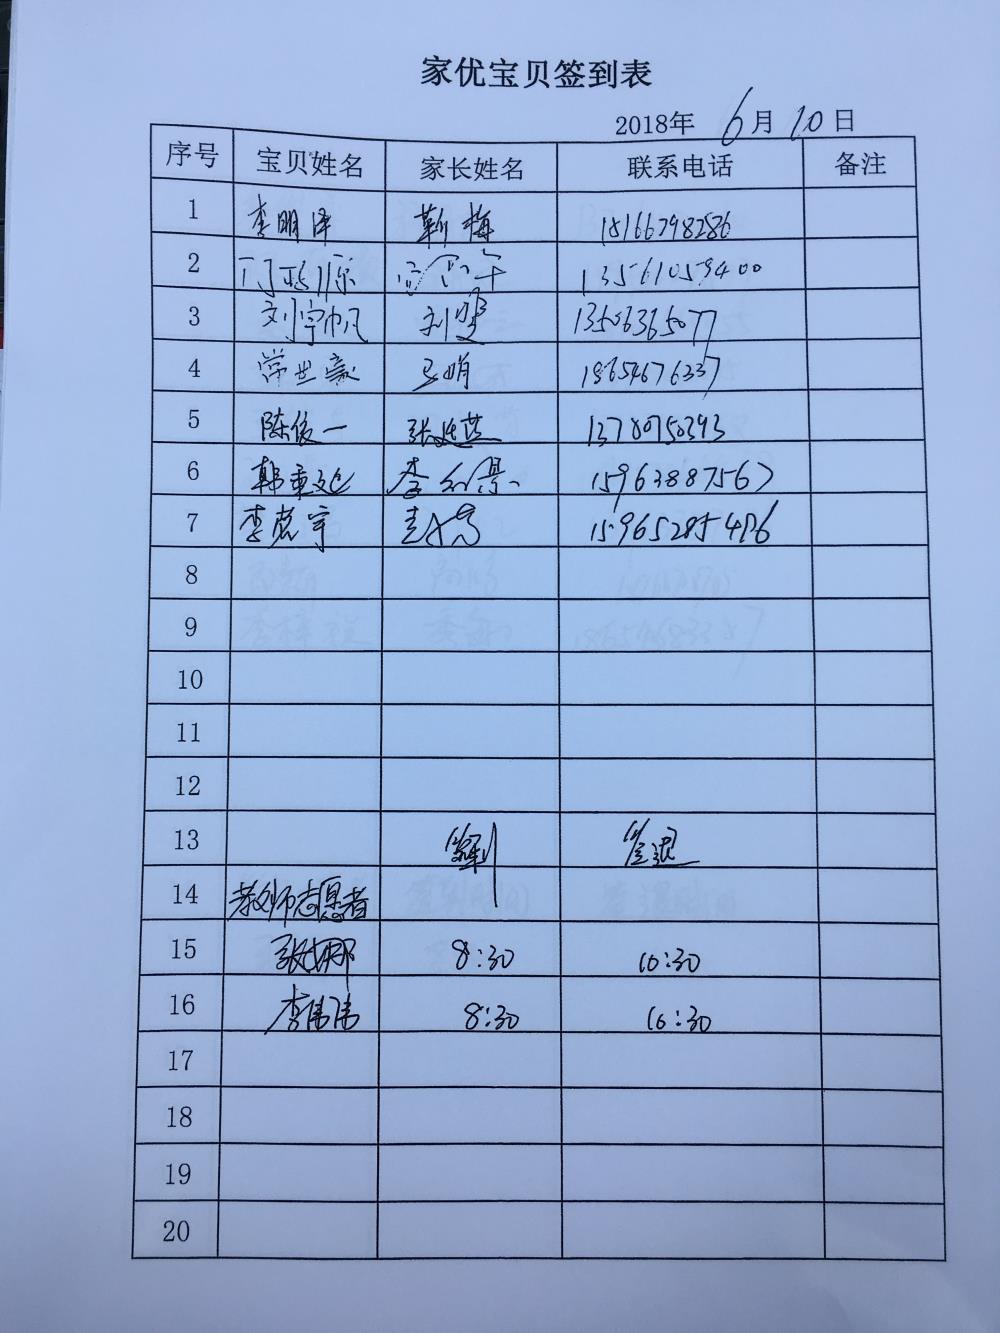 家优宝贝签到表
2018年 6月 10日
序号 宝贝姓名 家长姓名 联系电话 备注
1 李明泽 靳梅 18166798286
2 13561059400
3 刘宇帆 刘 13506365077
4 常世豪 马娟 18654676337
5 陈俊一 张延芸 13780750393
6 韩 李 景 15963887567
7 李 宇
8
9
10
11
12
13 签到 签退
14 教师志愿者
15 张娜 8:30 10:30
16 李伟伟 8:30 10:30
17
18
19
20